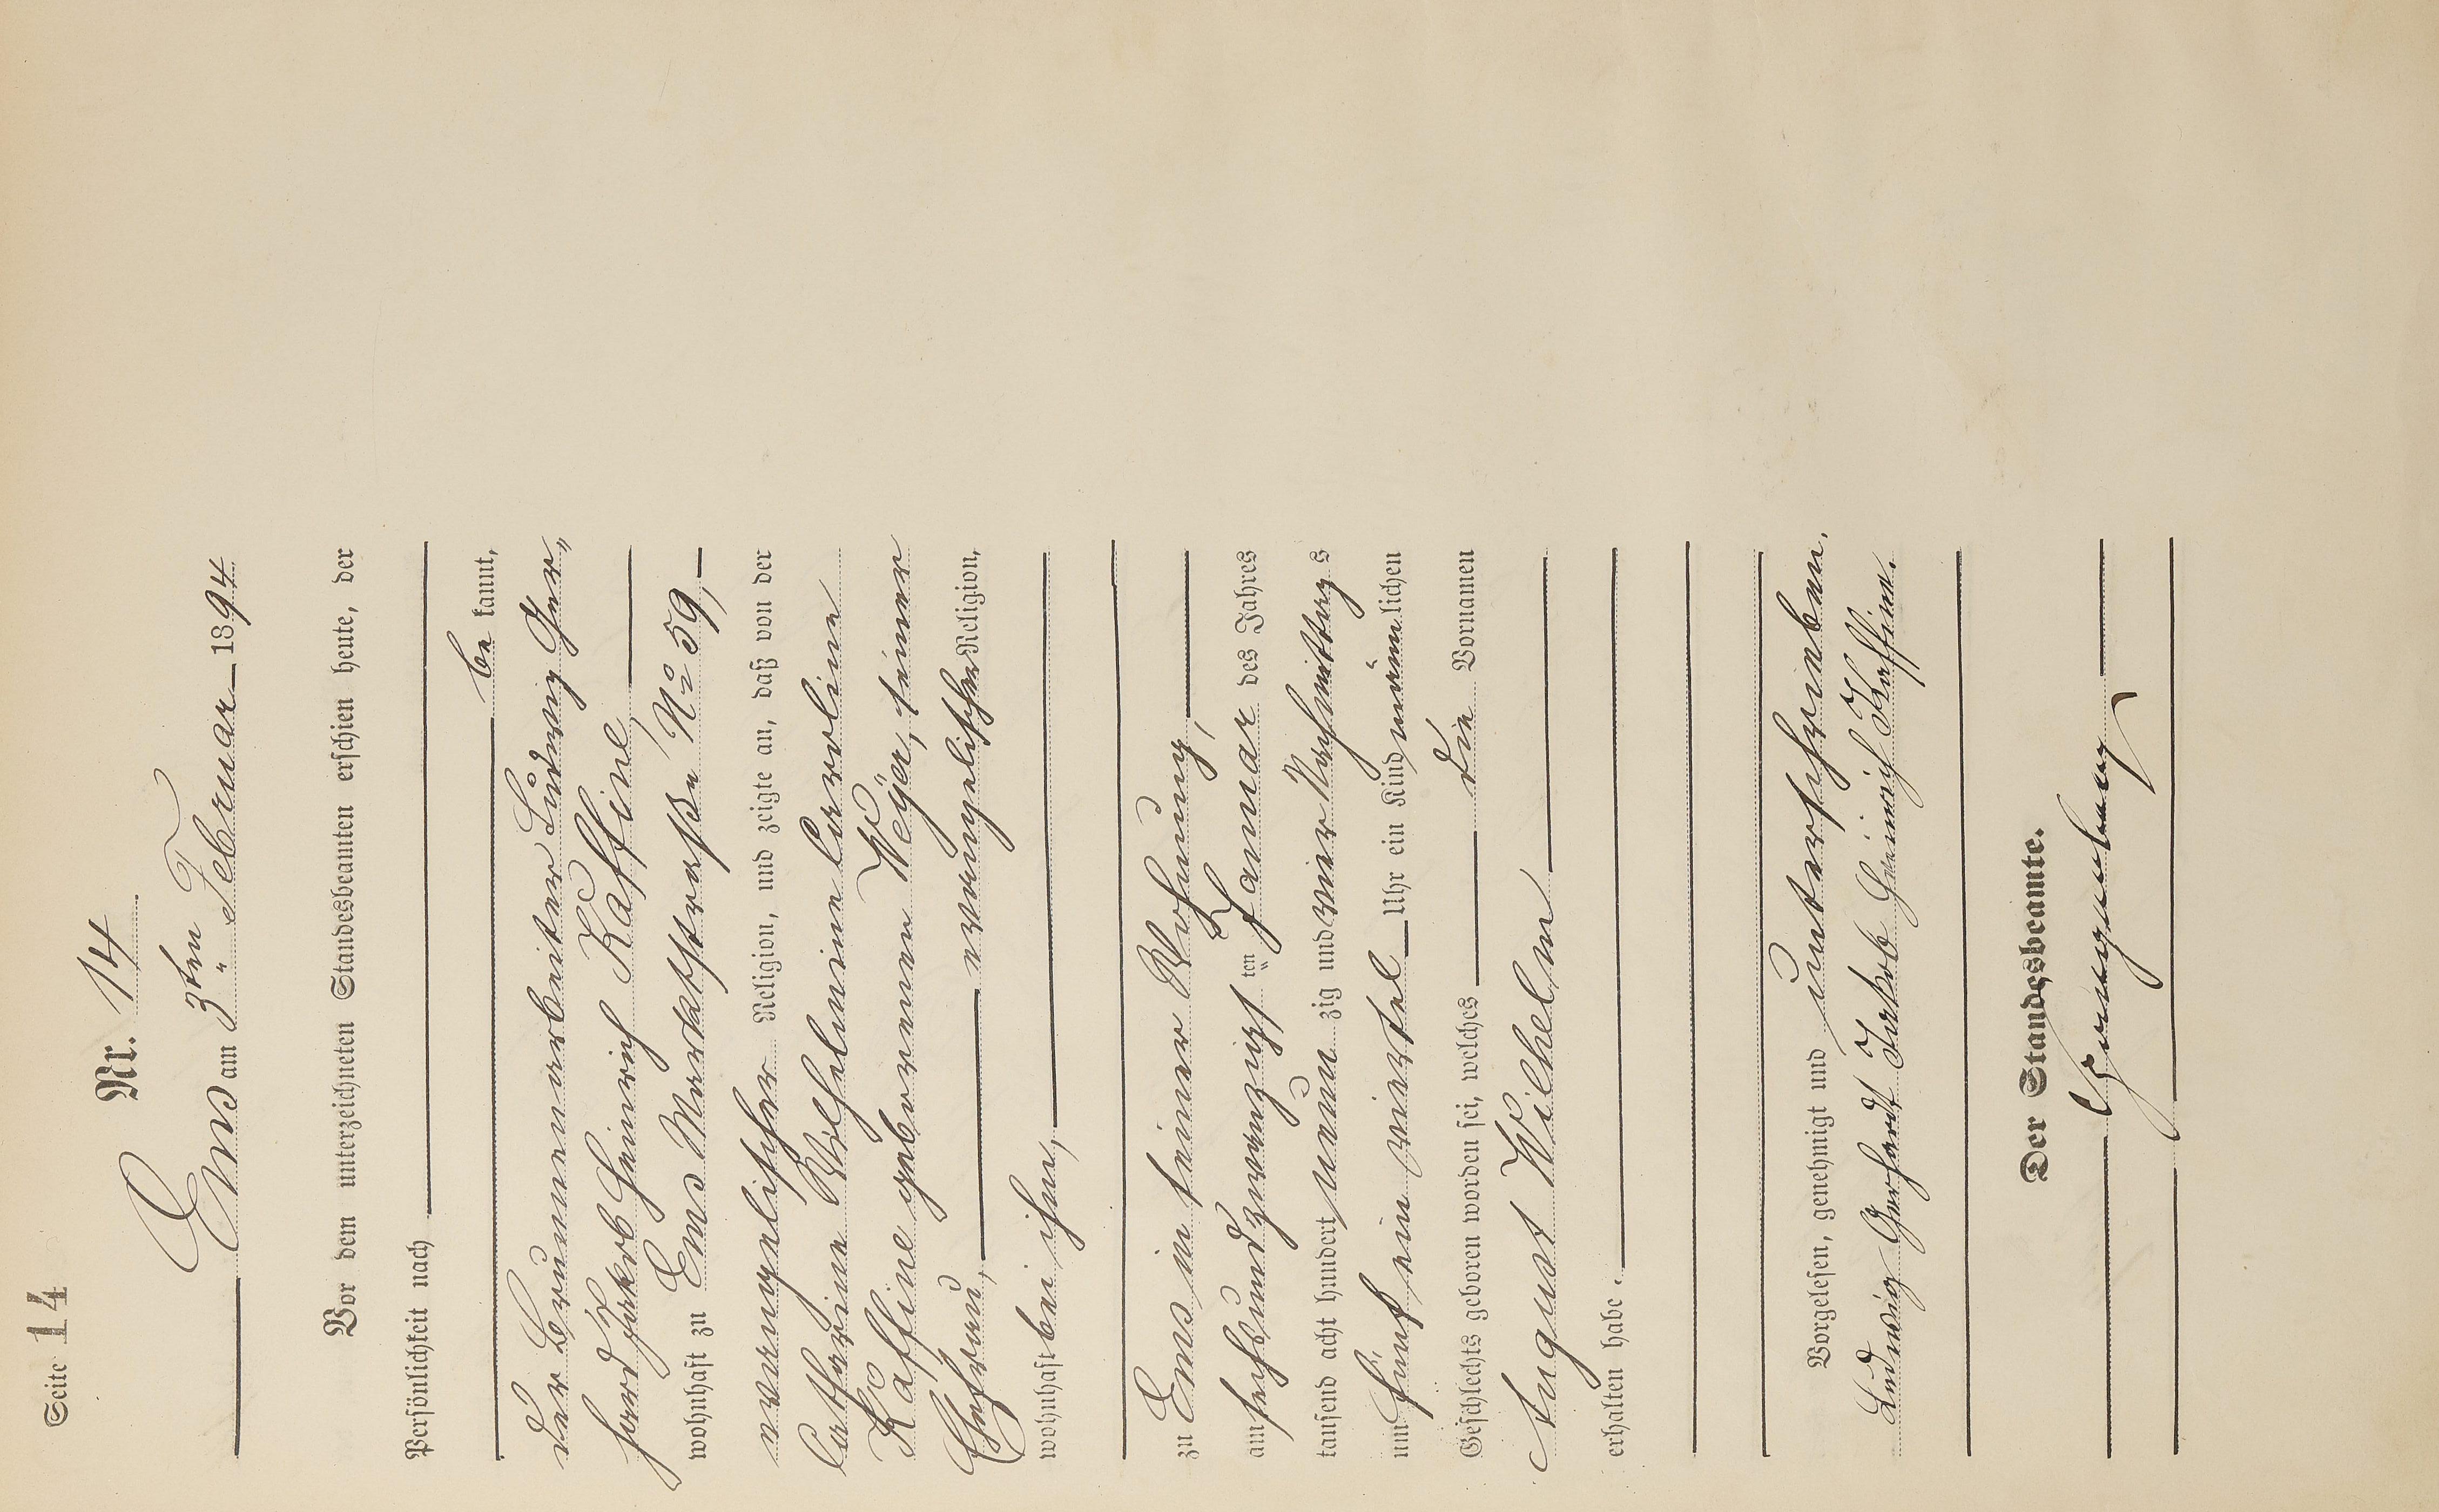 Seite 14
Nr. 14
Ems am 3ten Februar 1894
Vor dem unterzeichneten Standesbeamten erschien heute, der
Persönlichkeit nach
be kannt,
der Brunnenarbeiter Ludwig Ger„
hard Jakob Heinrich Kaffine,
wohnhaft zu Ems Marktstraße No 59,
evangelischer Religion, und zeigte an, daß von der
Catharine Wilhelmine Caroline
Kaffine geborenen Weyer, seiner
Ehefrau, evangelischer Religion,
wohnhaft bei ihm,
zu Ems in seiner Wohnung,
am sechsundzwanzigsten Januar des Jahres
tausend acht hundert neunzig und vier Nachmittags
um fünf ein viertel Uhr ein Kind männlichen
Geschlechts geboren worden sei, welches die Vornamen
August Wilhelm
erhalten habe.
Vorgelesen, genehmigt und unterschrieben.
Ludwig Gerhardt Jakob Heinrich Kaffine.
Der Standesbeamte.